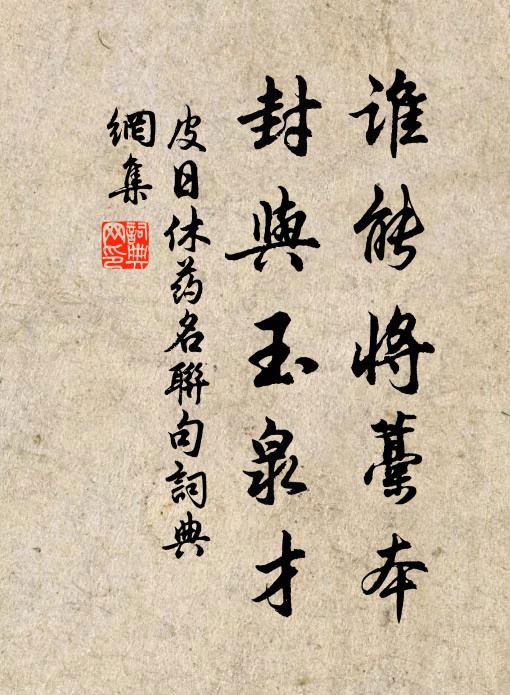 谁能将藁本
封與玉泉才
皮日休药名聯句詞典
網集
詞典
网印